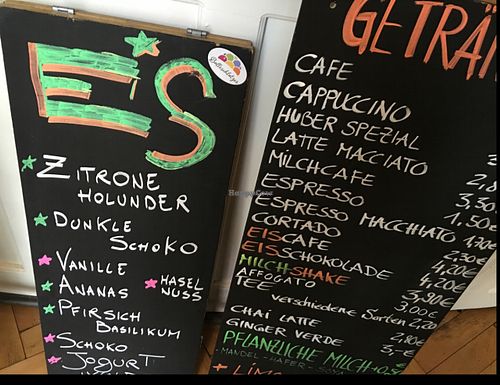 E'S
ZITRONE
HOLUNDER
DUNKLE
SCHOKO
VANILLE
HASEL
NUSS
ANANAS
PFIRSICH
BASILIKUM
SCHOKO
JOGURT
GETRÄ
CAFE
CAPPUCCINO
HUBER SPEZIAL
LATTE MACCIATO
MILCHCAFE
ESPRESSO 1,50€
ESPRESSO MACCHIATO 1,70€
CORTADO 2,30€
EISCAFE 4,20€
EISSCHOKOLADE 4,20€
MILCHSHAKE 3,90€
AFFOGATO 3,00€
TEE verschiedene Sorten 2,20
CHAI LATTE 2,80
GINGER VERDE 3,-€
PFLANZLICHE MILCH
-MANDEL-HAFER-
+ LIMO